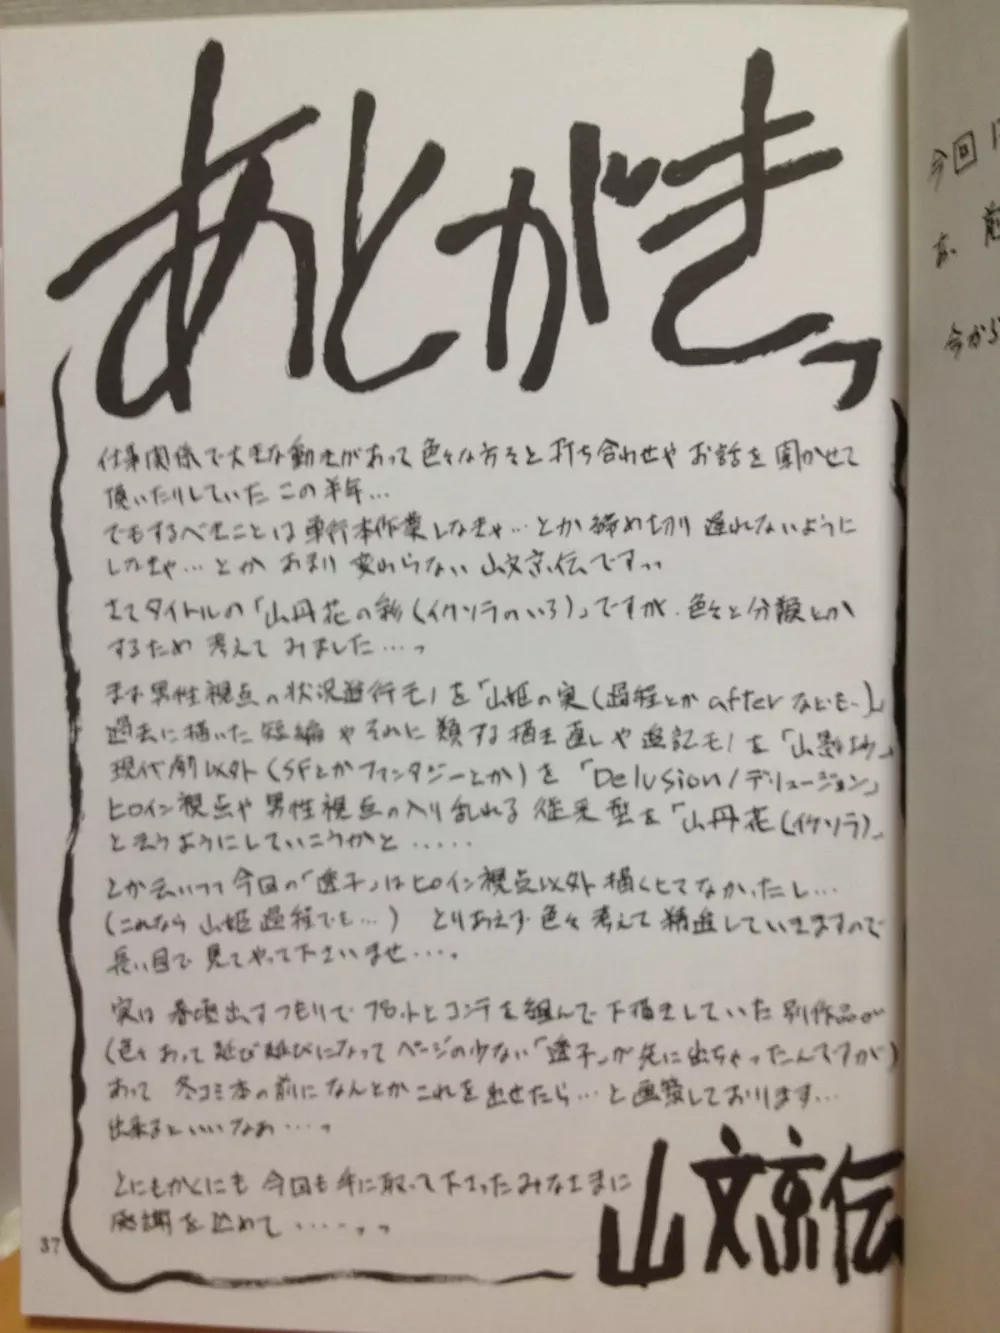 あとがきっ
仕事関係で大きな動きがあって色々な方々と打ち合わせやお話を聞かせて
頂いたりしていたこの半年…
でもするべきことは単行本作業しなきゃ…とか締め切り遅れないように
しなきゃ…とかあまり変わらない山文京伝ですっ
さてタイトルの「山丹花の彩(イケソラのいろ)」ですが、色々と分類とか
するため考えてみました…っ
まず男性視点の状況進行モノを「山姫の実(過程とかafterなども…)」
過去に描いた短編やそれに類する描き直しや追記モノを「山影抄」
現代劇以外(SFとかファンタジーとか)を「Delusion/デリュージョン」
ヒロイン視点や男性視点の入り乱れる従来型を「山丹花(イケソラ)」
と云うようにしていこうかと.....
とか云いつつ今回の「透子」はヒロイン視点以外描くヒマなかったし…
(これなら山姫過程でも…) とりあえず色々考えて精進していきますので
長い目で見てやって下さいませ…。
実は春頃出すつもりでプロットとコンテを組んで下描きしていた別作品が
(色々あって延び延びになってページの少ない「透子」が先に出ちゃったんですが)
あって 冬コミ本の前になんとかこれを出せたら…と画策しております…
出来るといいなぁ…っ
とにもかくにも今回も手に取って下さったみなさまに
感謝を込めて……っっ
山文京伝
37
今回
な
今から